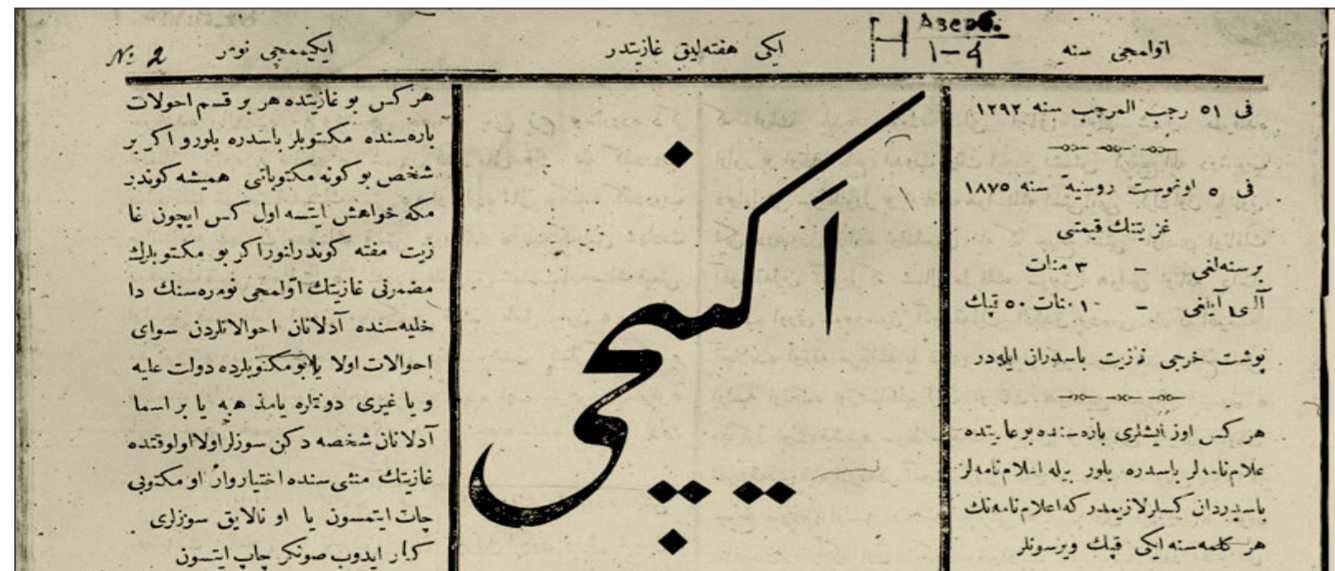 اوّلمجی سنه
Н Азерб.
1-4
ایکی هفته‌لیق غازیتدر
ایکیمجی نومر
№ 2
فی ٥١ رجب المرجب سنه ١٢٩٢
فی ٥ اوغوست روسیه سنه ١٨٧٥
غزیتنك قیمتی
برسنه‌لغی – ٣ منات
آلتی آیلغی – ١ منات ٥٠ قپك
پوشت خرجی غزیت باسدران ایله‌در
هر کس اوز ایشلری باره‌سنده بو غازیتده
علام‌نامه‌لر باسدره بلور بیله اعلام‌نامه‌لر
باسدردان کسلر لازیمدر که اعلام‌نامه‌نك
هر کلمه‌سنه ایکی قپك ویرسونلر
اکینچی
هر کس بو غازیتده هر بر قسم احولات
باره‌سنده مکتوبلر باسدره بلور و اکر بر
شخص بو کونه مکتوباتی همیشه کوندر
مکه خواهش ایتسه اول کس ایچون غا
زیت مفته کوندرلنور اکر بو مکتوبلرك
مضمرنی غازیتك اوّلمجی نومره‌سنك دا
خلیه‌سنده آدلانان احوالاتلردن سوای
احوالات اولا یا بو مکتوبلرده دولت علیه
و یا غیری دولتلره یا مذهبه یا بر اسما
آدلانان شخصه دکن سوزلر اولا اولوقتده
غازیتك منشی‌سنده اختیار وار او مکتوبی
چاپ ایتمسون یا او نالایق سوزلری
کنار ایدوب صونکر چاپ ایتسون